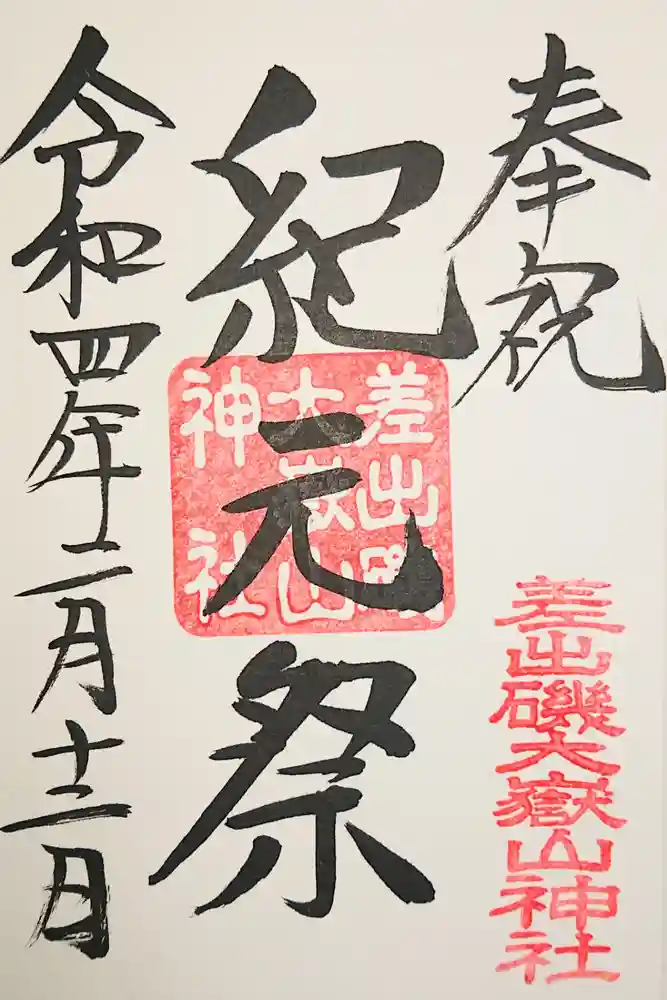 奉祝
紀元祭
令和四年二月十二日
差出磯
大嶽山
神社
差出磯大嶽山神社